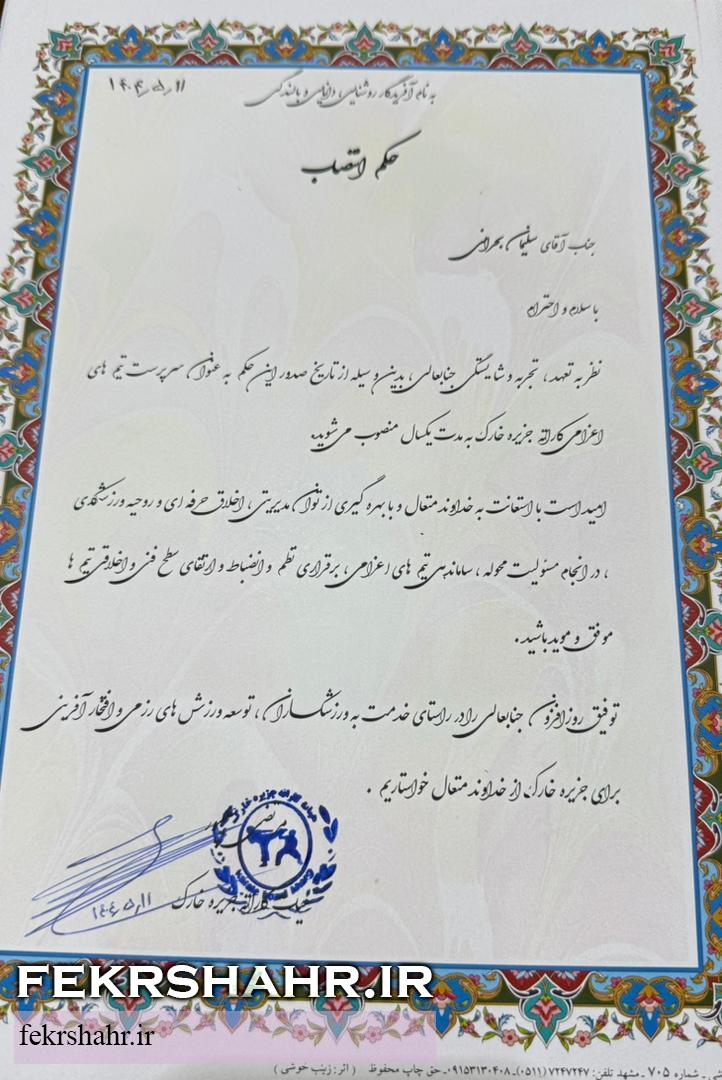 به نام آفریدگار روشنایی، دانایی و بالندگی
۱۴۰۴٫۵٫۱۱
حکم انتصاب
جناب آقای سلیمان بحرانی
با سلام و احترام
نظر به تعهد ، تجربه و شایستگی جنابعالی ، بدین وسیله از تاریخ صدور این حکم به عنوان سرپرست تیم های
اعزامی کاراته جزیره خارک به مدت یکسال منصوب می شوید.
امید است با استعانت به خداوند متعال و با بهره گیری از توان مدیریتی ، اخلاق حرفه ای و روحیه ورزشکاری
، در انجام مسئولیت محوله ، ساماندهی تیم های اعزامی ، برقراری نظم و انضباط و ارتقای سطح فنی و اخلاقی تیم ها
موفق و موید باشید .
توفیق روز افزون جنابعالی را در راستای خدمت به ورزشکاران ، توسعه ورزش های رزمی و افتخار آفرینی
برای جزیره خارک از خداوند متعال خواستاریم .
هیات کاراته جزیره خارک
هیات کاراته جزیره خارک
۱۴۰۴٫۵٫۱۱
FEKRSHAHR.IR
fekrshahr.ir
شماره ۷۰۵ ـ مشهد تلفن: ۷۲۴۷۲۴۷ (۰۵۱۱) ـ ۰۹۱۵۳۱۳۰۴۰۸ ـ حق چاپ محفوظ ( اثر: زینب خوشی )